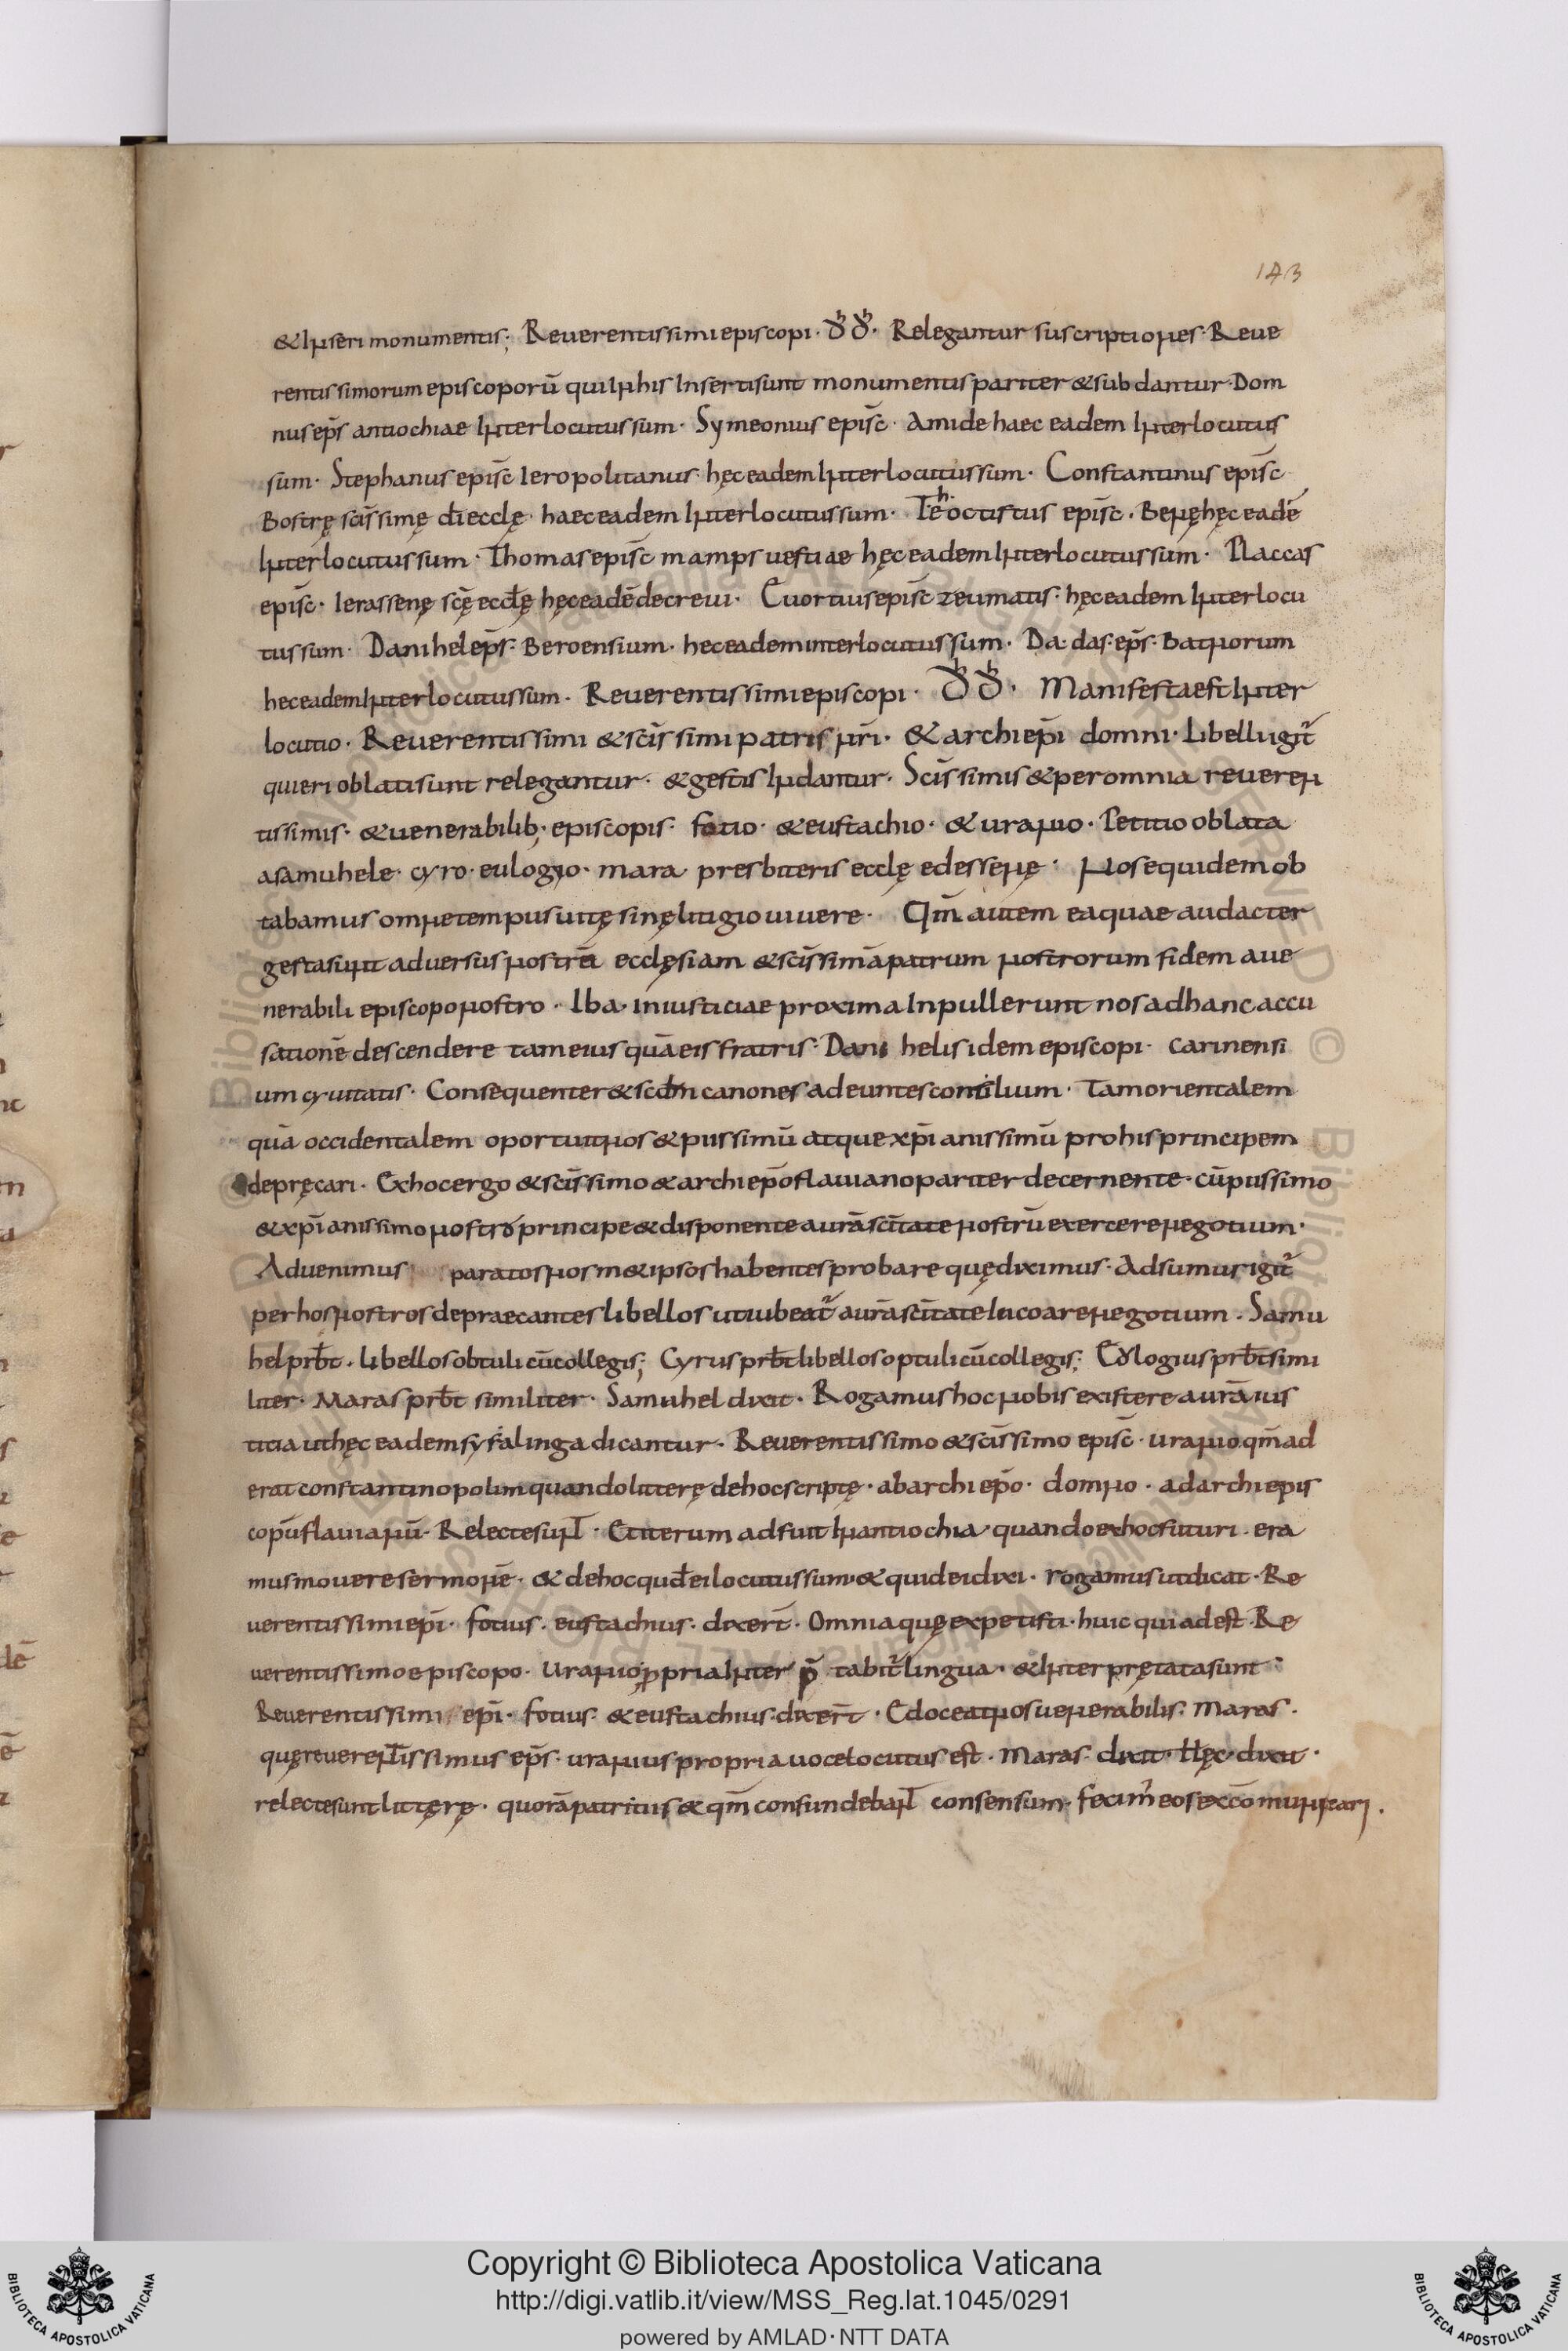 143
& Inseri monumentis; Reuerentissimi episcopi· đđ· Relegantur suscriptiones· Reue
rentissimorum episcoporū qui In his Inserti sunt monumentis pariter & sub dantur· Dom
nus ep̄s antiochiae Interlocutus sum· Symeonius epis̄c· amide haec eadem Interlocutus
sum· Stephanus epis̄c Ieropolitanus· hęc eadem Interlocutus sum· Constantinus epis̄c
Bostrę sc̄issimę d̄i ecclę· haec eadem Interlocutus sum· Tehoctistus epis̄c· Benę hęc eadē
Interlocutus sum· Thomas epis̄c mampsuestiae hęc eadem Interlocutus sum· Placcas
epis̄c· Ierassenę sc̄ę eccłę hęc eadē decreui· Euortius epis̄c zeumatis· hęc eadem Interlocu
tus sum· Danihel ep̄s· Beroensium· hec eadem interlocutus sum· Da·das· ep̄s· Batnorum
hec eadem Interlocutus sum· Reuerentissimi episcopi· đđ· Manifesta est Inter
locutio· Reuerentissimi & sc̄issimi patris n̄ri· & archiep̄i domni· Libelli igit̄
qui eri oblati sunt relegantur· & gestis Indantur· Sc̄issimis & per omnia reueren
tissimis· & uenerabilib; episcopis· fotio· & eustachio· & uranio· Petitio oblata
a samuhele· cyro· eulogio· mara· presbiteris ecclę edessenę· Nos equidem ob
tabamus omne tempus uitę sinę litigio uiuere· Qm̄ autem ea quae audacter
gesta sunt aduersus nostrā ecclęsiam & sc̄issimā patrum nostrorum fidem a ue
nerabili episcopo nostro· Iba· iniusticiae proxima Inpullerunt nos ad hanc accu
sationē descendere tam eius quā eis fratris· Dani helis idem episcopi· carinensi
um cyuitatis· Consequenter & scdm̄ canones adeuntes consilium· Tam orientalem
quā occidentalem oportuit nos & piissimū atque xp̄ianissimū pro his principem
depręcari· Ex hoc ergo & sc̄issimo & archiep̄o flauiano pariter decernente· cū piissimo
& xp̄ianissimo nostro principe & disponente aurā sc̄itate nostrū exercere negotium·
Aduenimus paratos nos m&ipsos habentes probare quę diximus· Adsumus igit̄
per hos nostros depraecantes libellos ut iubeat̄ aurā sc̄itate Incoare negotium· Samu
hel prb̄t· libellos obtuli cū collegis; Cyrus prb̄t libellos optuli cū collegis; Eologius prb̄t simi
liter· Maras prb̄t similiter· Samuhel dixit· Rogamus hoc nobis existere aurā ius
titia ut hęc eadem syra linga dicantur· Reuerentissimo & sc̄issimo epis̄c· uranio qm̄ ad
erat constantinopolim quando litterę de hoc scriptę· ab archiep̄o· domno· ad archiepis
copū flauianū· Relecte sunt̄· Et iterum adfuit In antiochia quando ex hoc futuri· era
mus mouere sermonē· & de hoc quđ ei locutus sum· & quid ei dixi· rogamus ut dicat· Re
uerentissimi ep̄i· fotius· eustachius· dixer̄t· Omnia quę expetisti· huic qui adest· Re
uerentissimo episcopo· uranio propria Inter p̄ tabit̄ lingua· & Interprętata sunt·
Reuerentissimi ep̄i· fotius· & eustachius· dixer̄t· Edoceat nos uenerabilis· Maras·
quę reuerent̄issimus ep̄s· uranius propria uoce locutus est· Maras· dixit· Hęc· dixit·
relecte sunt littęrę· quorā patritiis & qm̄ confundebant̄ consensum· fecim̄ eos excōmunicari·
Copyright © Biblioteca Apostolica Vaticana
http://digi.vatlib.it/view/MSS_Reg.lat.1045/0291
powered by AMLAD·NTT DATA
BIBLIOTECA APOSTOLICA VATICANA
BIBLIOTECA APOSTOLICA VATICANA